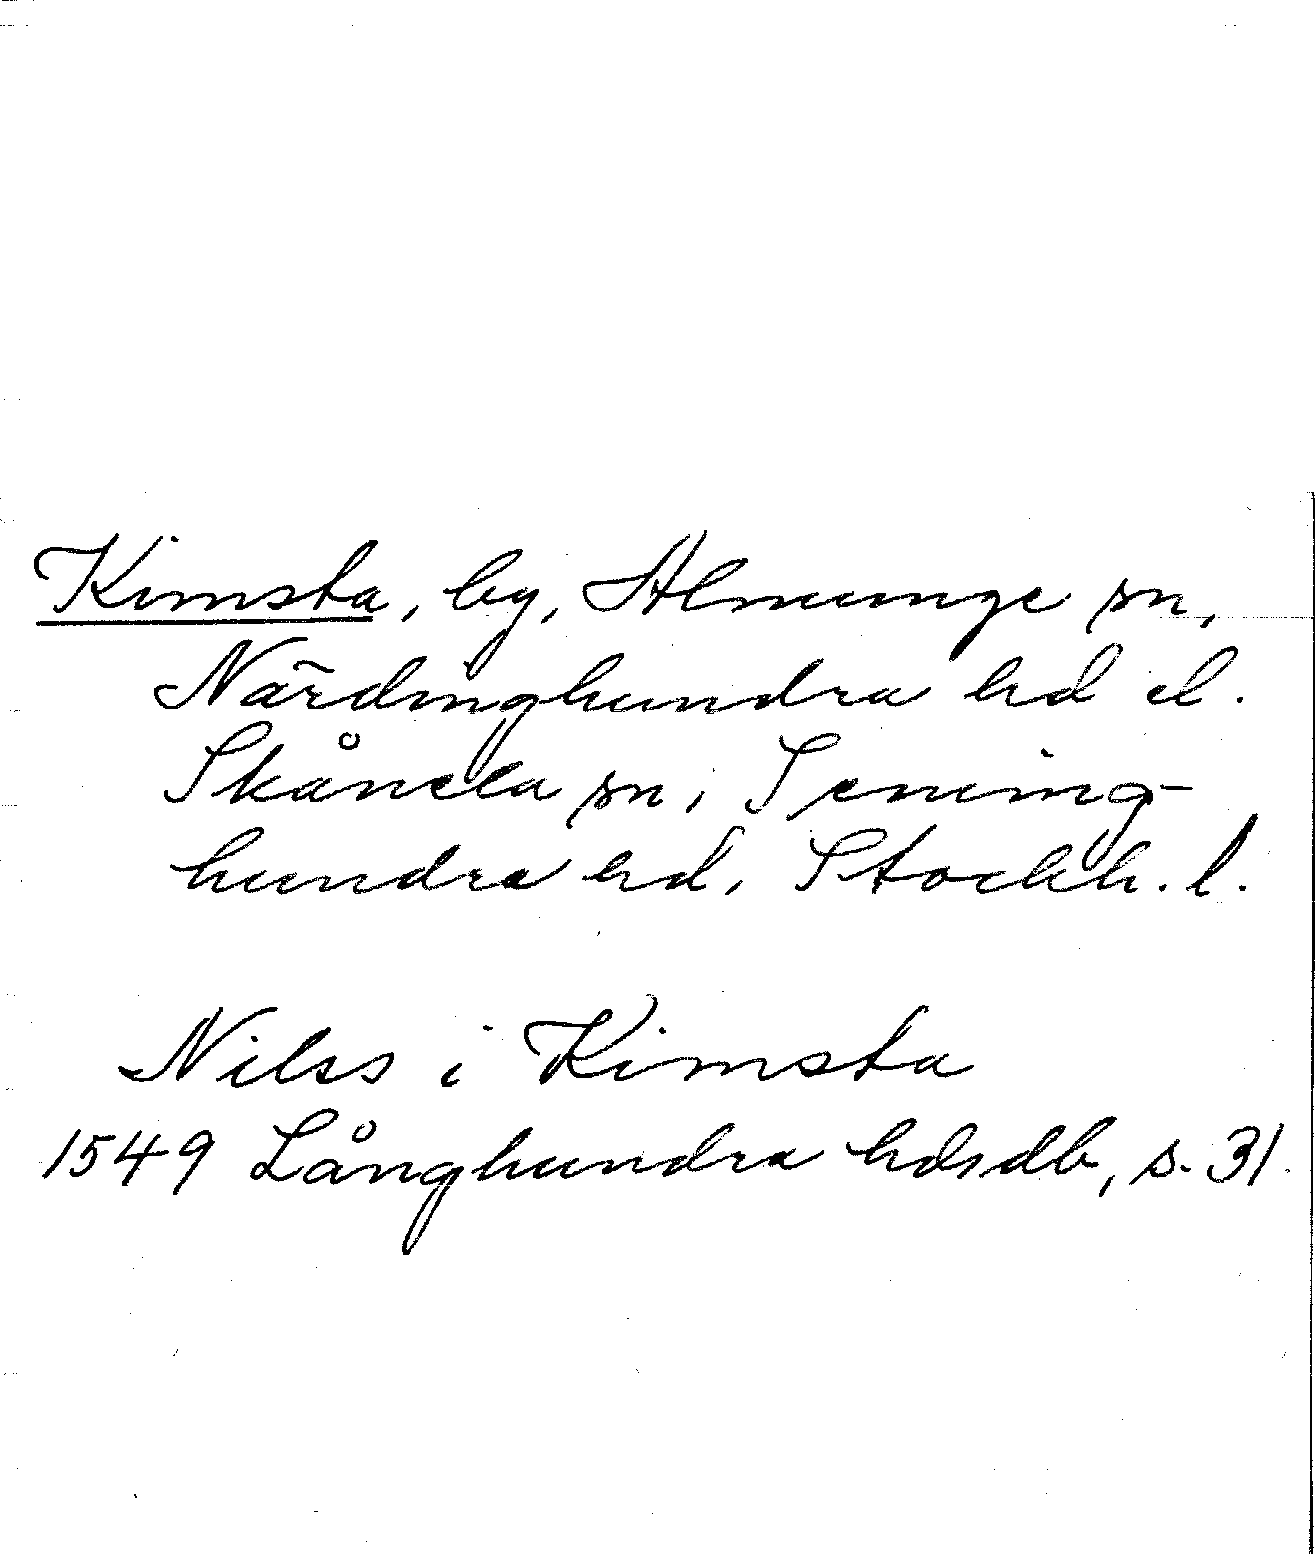 Kimsta, by, Almunge sn,
Närdinghundra hd el.
Skånela sn, Seming-
hundra hd, Stockh. l.
Nilss i Kimsta
1549 Långhundra hdsdb, s. 31.